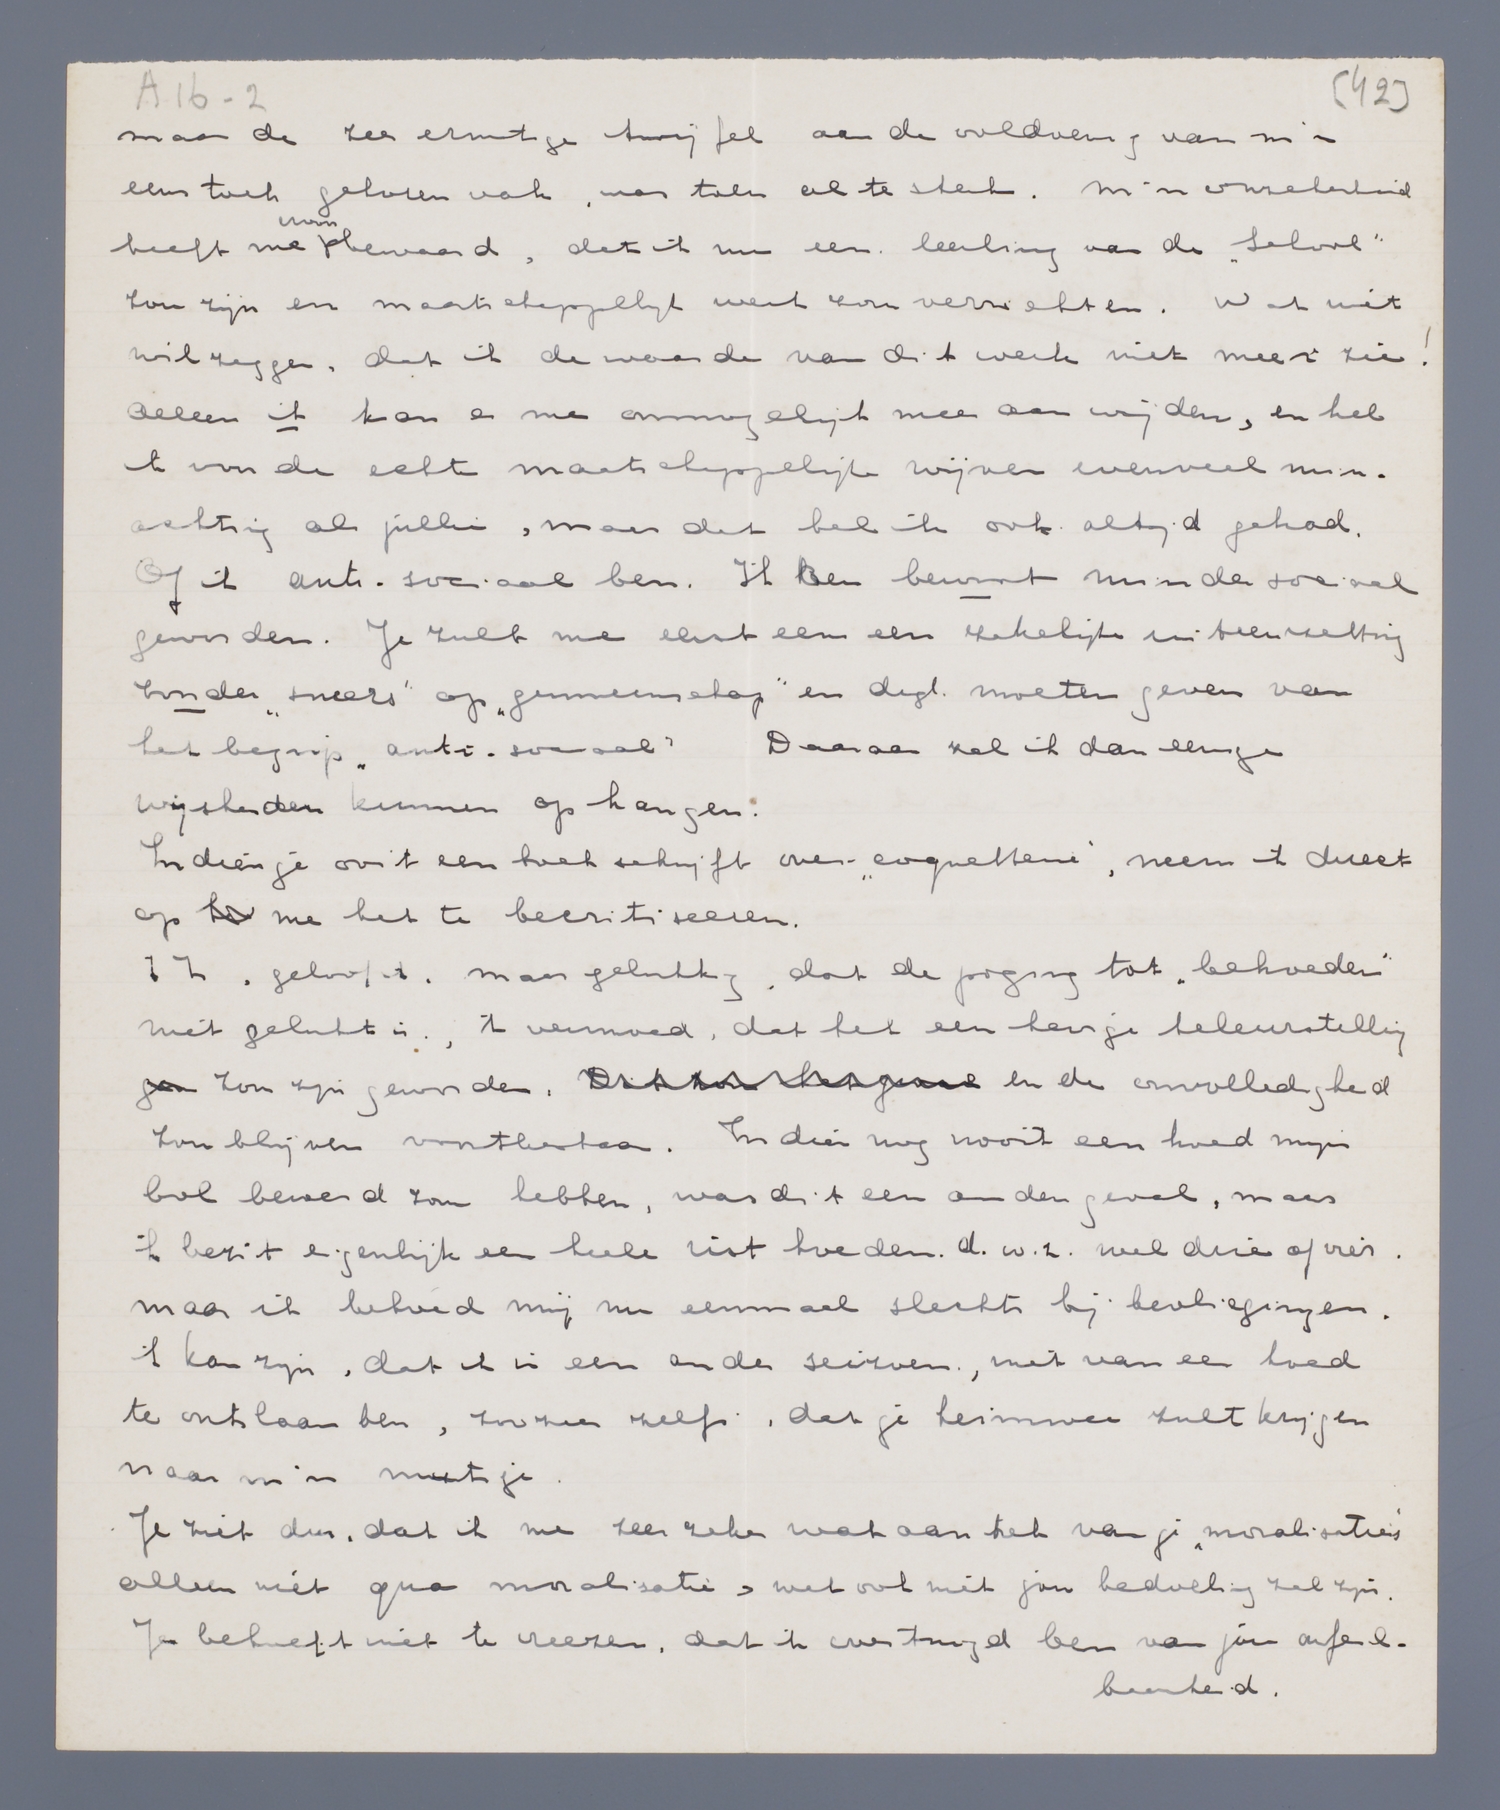 A 16-2
(42)
maar de zeer ernstige twijfel aan de voldoening van m'n
eens toch gekozen vak, was toen al te sterk. M'n onzekerheid
heeft me ervoor bewaard, dat ik nu een leerling van de „School"
zou zijn en maatschappelijk werk zou verrichten. Wat niet
wil zeggen, dat ik de waarde van dit werk niet meer zie!
Alleen ik kan er me onmogelijk mee aan wijden, en heb
voor de echte maatschappelijke wijven evenveel min-
achting als jullie, maar dat heb ik ook altijd gehad.
Of ik anti-sociaal ben. Ik ben bewust minder sociaal
geworden. Je zult me eerst eens een zakelijke uiteenzetting
zonder „sneers" op „gemeenschap" en dergl. moeten geven van
het begrip „anti-sociaal" Daaraan zal ik dan eenige
wijsheden kunnen ophangen.
Indien je ooit een boek schrijft over „coquetterie", neem ik direct
op me het te becritiseeren.
't Is, geloof ik, maar gelukkig, dat de poging tot „behoeden"
niet gelukt is, ik vermoed, dat het een hevige teleurstelling
zou zijn geworden. en de onvolledigheid
zou blijven voortbestaan. Indien nog nooit een hoed mijn
bol beweerd zou hebben, was dit een ander geval, maar
ik bezit eigenlijk een heele rist hoeden. d.w.z. wel drie of vier.
maar ik behoed mij nu eenmaal slechts bij bevliegingen.
't kan zijn, dat ik in een ander seizoen, niet van een hoed
te ontslaan ben, zoozeer zelfs, dat je heimwee zult krijgen
naar m'n mutsje.
Je ziet dus, dat ik me zeer zeker wat aantrek van je „moralisaties"
alleen niet qua moralisatie, wat ook niet jou bedoeling zal zijn.
Je behoeft niet te vreezen, dat ik overtuigd ben van jou onfeil-
baarheid.